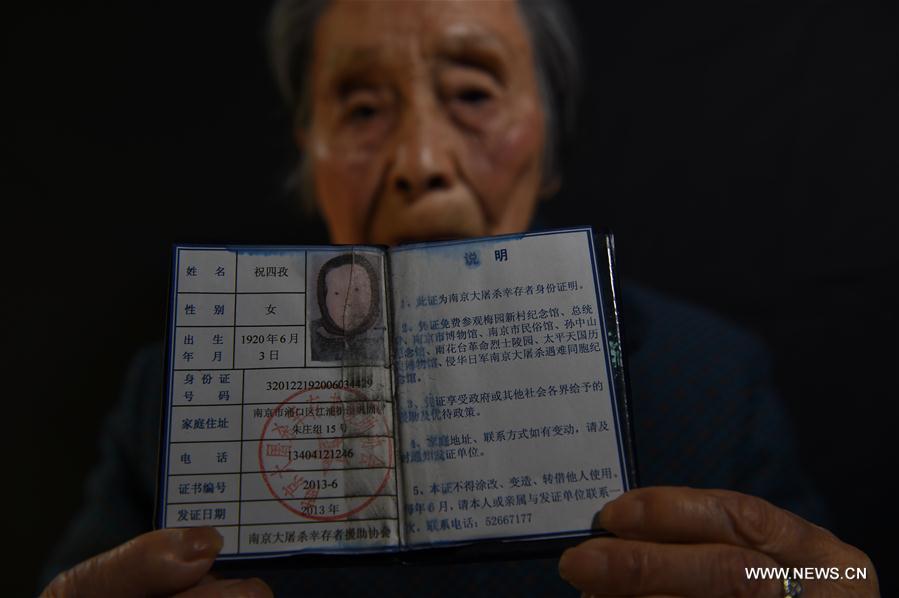 姓 名 祝四孜
性 别 女
出 生 1920年6月
年 月 3日
身份证 320122192006034429
号 码
家庭住址 南京市浦口区江浦街道
朱庄组15号
电 话 13404121246
证书编号 2013-6
发证日期 2013年
南京大屠杀幸存者援助协会
说 明
1、此证为南京大屠杀幸存者身份证明。
2、凭证免费参观梅园新村纪念馆、总统
、南京市博物馆、南京市民俗馆、孙中山
纪念馆、雨花台革命烈士陵园、太平天国历
史博物馆、侵华日军南京大屠杀遇难同胞纪
念馆。
3、凭证享受政府或其他社会各界给予的
援助及优待政策。
4、家庭地址、联系方式如有变动，请及
时通知发证单位。
5、本证不得涂改、变造、转借他人使用。
每年6月，请本人或亲属与发证单位联系一
次。联系电话：52667177
WWW.NEWS.CN